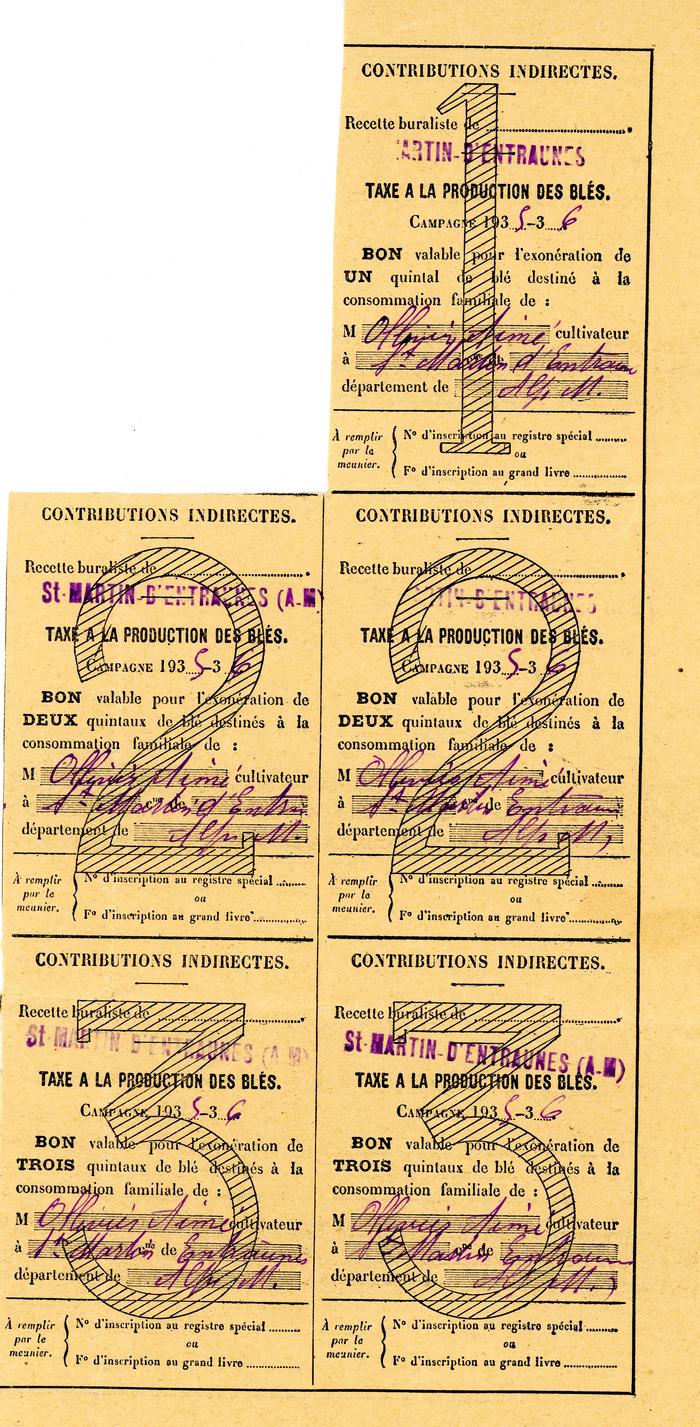 CONTRIBUTIONS INDIRECTES.
Recette buraliste de
ARTIN-D'ENTRAUNES
TAXE A LA PRODUCTION DES BLÉS.
CAMPAGNE 1935-36
BON valable pour l'exonération de
UN quintal de blé destiné à la
consommation familiale de :
M Ollivier Aimé cultivateur
à St Martin d'Entraunes
département de Alp. M.
À remplir par le meunier.
N° d'inscription au registre spécial
ou
F° d'inscription au grand livre
1
CONTRIBUTIONS INDIRECTES.
Recette buraliste de
St-MARTIN-D'ENTRAUNES (A.M)
TAXE A LA PRODUCTION DES BLÉS.
CAMPAGNE 1935-36
BON valable pour l'exonération de
DEUX quintaux de blé destinés à la
consommation familiale de :
M Ollivier Aimé cultivateur
à St Martin d'Entrau
département de Alp. M.
À remplir par le meunier.
N° d'inscription au registre spécial
ou
F° d'inscription au grand livre
2
CONTRIBUTIONS INDIRECTES.
Recette buraliste de
TIN-D'ENTRAUNES
TAXE A LA PRODUCTION DES BLÉS.
CAMPAGNE 1935-36
BON valable pour l'exonération de
DEUX quintaux de blé destinés à la
consommation familiale de :
M Ollivier Aimé cultivateur
à St Martin Entraunes
département de Alp. M.
À remplir par le meunier.
N° d'inscription au registre spécial
ou
F° d'inscription au grand livre
2
CONTRIBUTIONS INDIRECTES.
Recette buraliste de
St-MARTIN D'ENTRAUNES (A M)
TAXE A LA PRODUCTION DES BLÉS.
CAMPAGNE 1935-36
BON valable pour l'exonération de
TROIS quintaux de blé destinés à la
consommation familiale de :
M Ollivier Aimé cultivateur
à St Martin de Entraunes
département de Alp. M.
À remplir par le meunier.
N° d'inscription au registre spécial
ou
F° d'inscription au grand livre
3
CONTRIBUTIONS INDIRECTES.
Recette buraliste de
St-MARTIN-D'ENTRAUNES (A-M)
TAXE A LA PRODUCTION DES BLÉS.
CAMPAGNE 1935-36
BON valable pour l'exonération de
TROIS quintaux de blé destinés à la
consommation familiale de :
M Ollivier Aimé cultivateur
à St Martin Entraunes
département de Alp. M.
À remplir par le meunier.
N° d'inscription au registre spécial
ou
F° d'inscription au grand livre
3